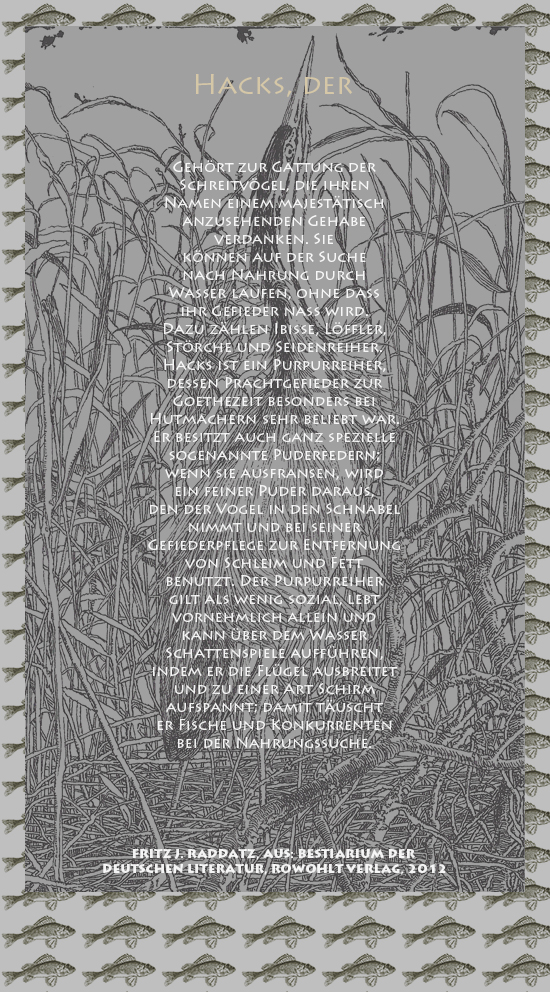 Hacks, der
Gehört zur Gattung der
Schreitvögel, die ihren
Namen einem majestätisch
anzusehenden Gehabe
verdanken. Sie
können auf der Suche
nach Nahrung durch
Wasser laufen, ohne dass
ihr Gefieder nass wird.
Dazu zählen Ibisse, Löffler,
Störche und Seidenreiher.
Hacks ist ein Purpurreiher,
dessen Prachtgefieder zur
Goethezeit besonders bei
Hutmachern sehr beliebt war.
Er besitzt auch ganz spezielle
sogenannte Puderfedern;
wenn sie ausfransen, wird
ein feiner Puder daraus,
den der Vogel in den Schnabel
nimmt und bei seiner
Gefiederpflege zur Entfernung
von Schleim und Fett
benutzt. Der Purpurreiher
gilt als wenig sozial, lebt
vornehmlich allein und
kann über dem Wasser
Schattenspiele aufführen,
indem er die Flügel ausbreitet
und zu einer Art Schirm
aufspannt; damit täuscht
er Fische und Konkurrenten
bei der Nahrungssuche.
Fritz J. Raddatz, aus: Bestiarium der
deutschen Literatur, Rowohlt Verlag, 2012